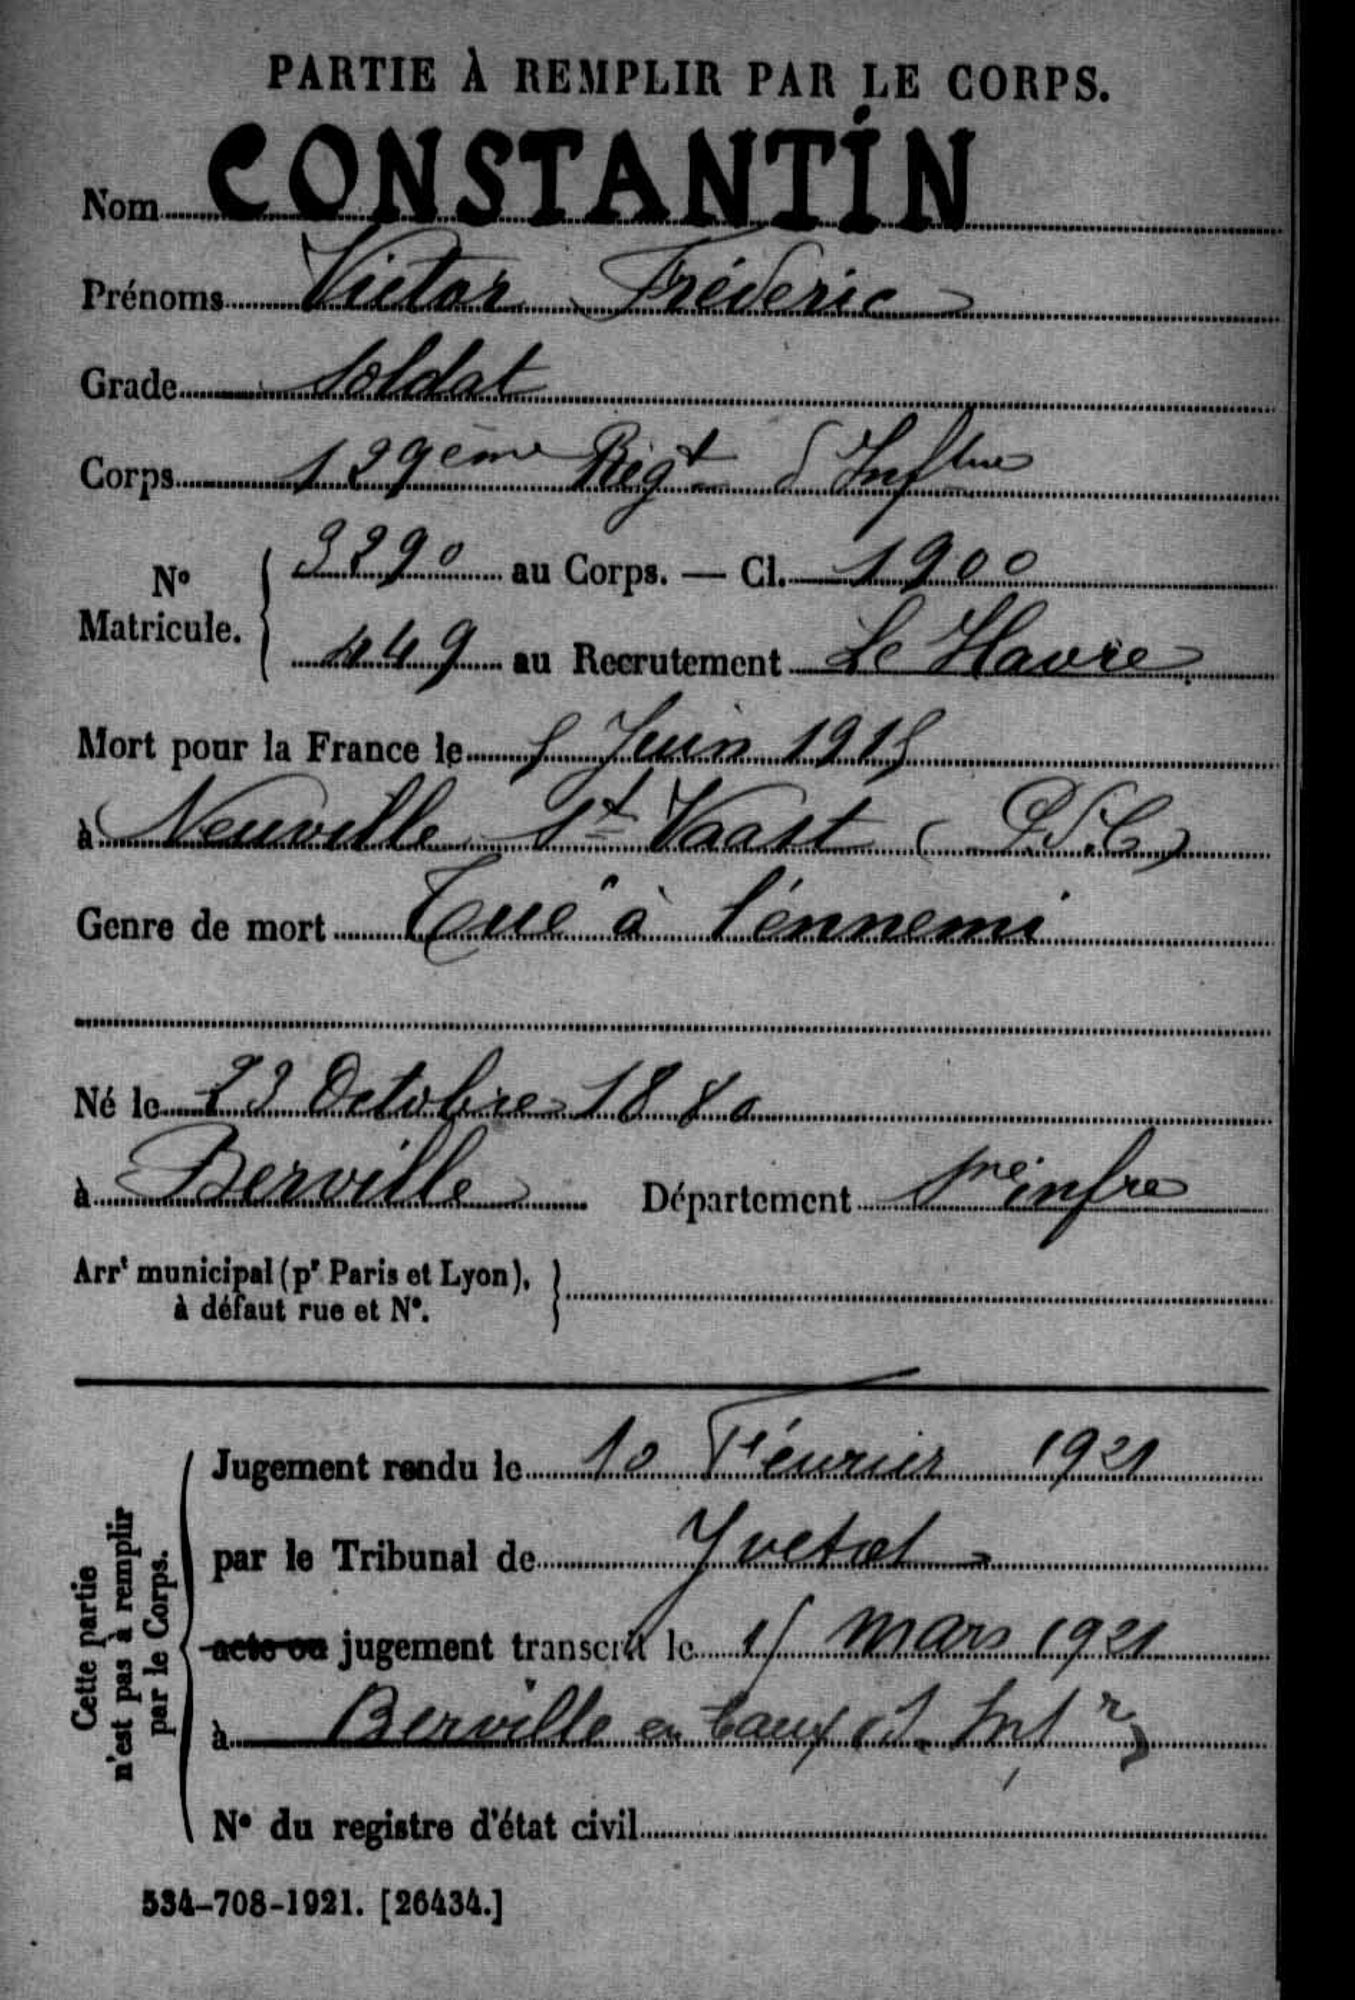 PARTIE À REMPLIR PAR LE CORPS.
Nom CONSTANTIN
Prénoms Victor Fréderic
Grade Soldat
Corps 129ème Regt d'Inftrie
No Matricule. { 3290 au Corps. — Cl. 1900
449 au Recrutement Le Havre
Mort pour la France le 5 Juin 1915
à Neuville St Vaast (P.d.C)
Genre de mort Tué à l'énnemi
Né le 23 Octobre 1880
à Berville Département Sre infre
Arrt municipal (pr Paris et Lyon), à défaut rue et No. }
Cette partie n'est pas à remplir par le Corps.
Jugement rendu le 10 Février 1921
par le Tribunal de Yvetot
acte ou jugement transcrit le 15 mars 1921
à Berville en Caux (S. Infre)
No du registre d'état civil
534-708-1921. [26434.]